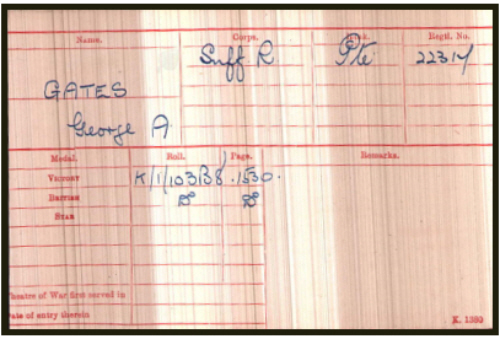 Name. Corps. Rank. Regtl. No.
Suff R Pte 22317
GATES
George A
Medal. Roll. Page. Remarks.
VICTORY K/1/103B8. 1530.
BRITISH Do Do
STAR
Theatre of War first served in
Date of entry therein
K. 1380